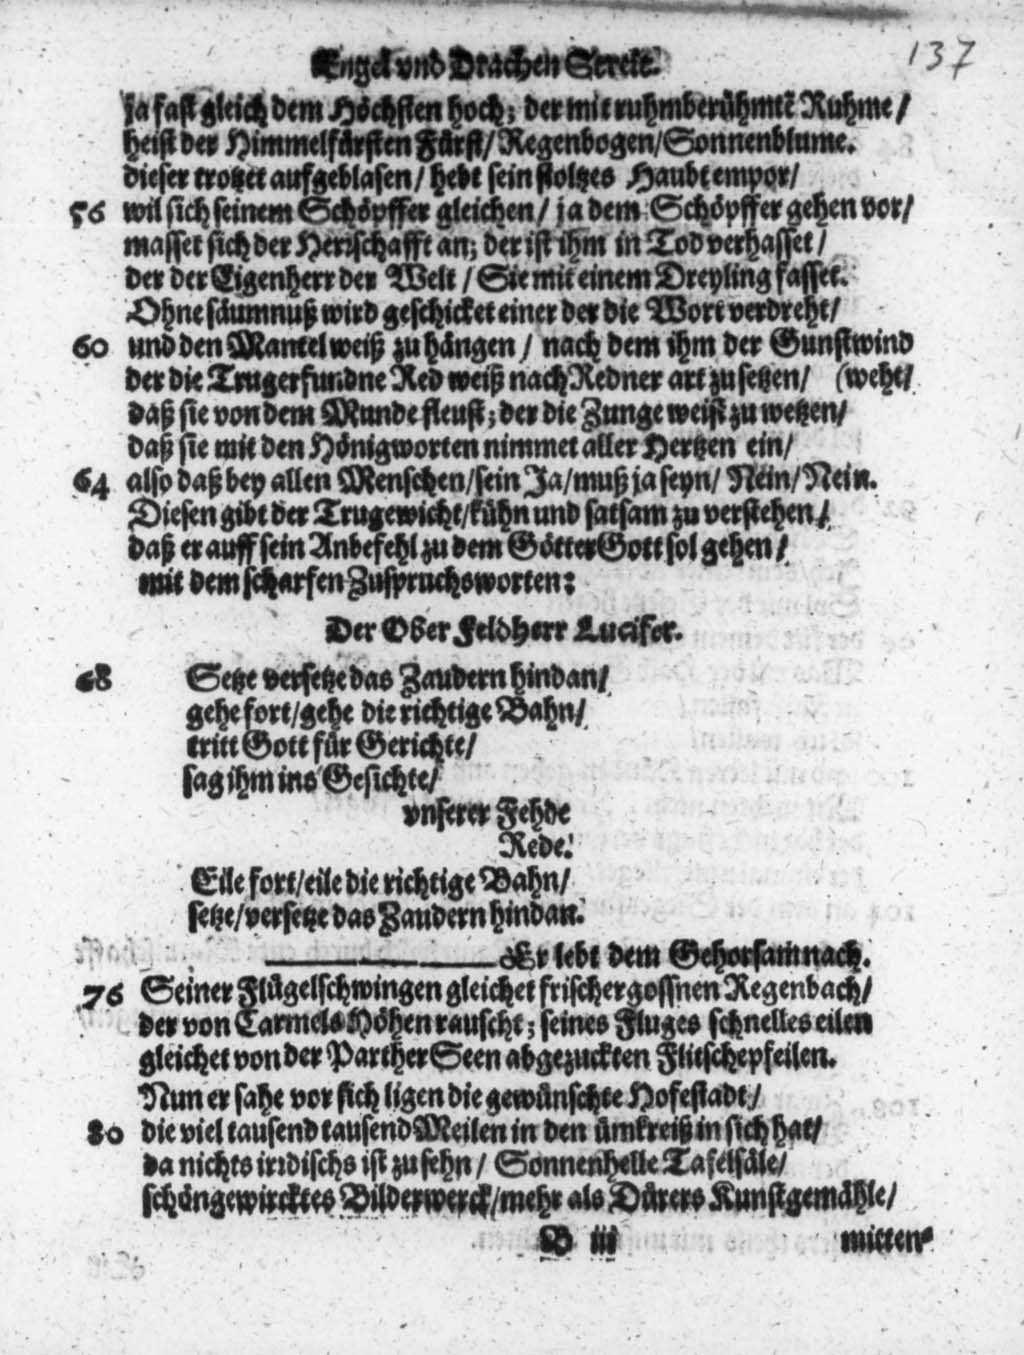 137
Engel vnd Drachen Streit.
ja fast gleich dem Höchsten hoch; der mit ruhmberühmtẽ Ruhme/
heist der Himmelfürsten Fürst/ Regenbogen/Sonnenblume.
dieser trotzet aufgeblasen/ hebt sein stoltzes Haubt empor/
56 wil sich seinem Schöpffer gleichen/ ja dem Schöpffer gehen vor/
masset sich der Herrschafft an; der ist ihm in Tod verhasset/
der der Eigenherr der Welt/ Sie mit einem Dreyling fasset.
Ohne säumnuß wird geschicket einer der die Wort verdreht/
60 und den Mantel weiß zu hängen/ nach dem ihm der Gunstwind
der die Trugerfundne Red weiß nach Redner art zu setzen/ (weht/
daß sie von dem Munde fleust; der die Zunge weist zu wetzen/
daß sie mit den Hönigworten nimmet aller Hertzen ein/
64 also daß bey allen Menschen/sein Ja/muß ja seyn/ Nein/Nein.
Diesen gibt der Trugewicht/kühn und satsam zu verstehen/
daß er auff sein Anbefehl zu dem Götter Gott sol gehen/
mit dem scharfen Zuspruchsworten:
Der Ober Feldherr Lucifer.
68 Setze versetze das Zaudern hindan/
gehe fort/gehe die richtige Bahn/
tritt Gott für Gerichte/
sag ihm ins Gesichte/
vnserer Fehde
Rede!
Eile fort/eile die richtige Bahn/
setze/versetze das Zaudern hindan.
Er lebt dem Gehorsam nach.
76 Seiner Flügelschwingen gleichet frischergossnen Regenbach/
der von Carmels Höhen rauscht; seines Fluges schnelles eilen
gleichet von der Parther Seen abgezuckten Flitschepfeilen.
Nun er sahe vor sich ligen die gewünschte Hofestadt/
80 die viel tausend tausend Meilen in den ümkreiß in sich hat/
da nichts irrdischs ist zu sehn/ Sonnenhelle Tafelsäle/
schöngewircktes Bilderwerck/mehr als Dürers Kunstgemähle/
B iii mitten-